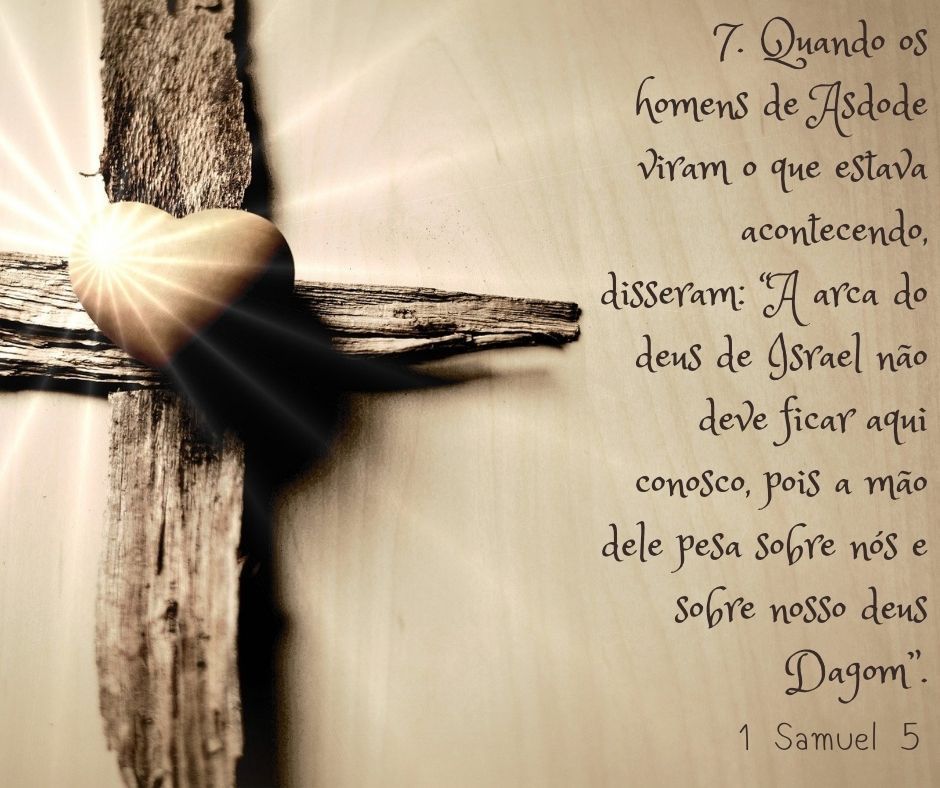 7. Quando os
homens de Asdode
viram o que estava
acontecendo,
disseram: “A arca do
deus de Israel não
deve ficar aqui
conosco, pois a mão
dele pesa sobre nós e
sobre nosso deus
Dagom”.
1 Samuel 5